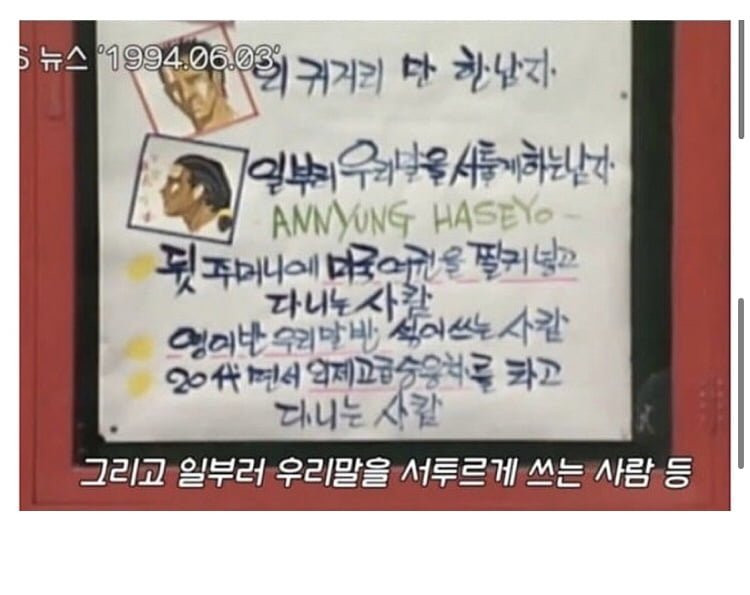 S 뉴스 '1994.06.03'
의 귀거리 만 한 남자.
일부러 우리말을 서툴게 하는 남자.
ANNYUNG HASEYO ~
뒷 주머니에 미국여권을 찔러 넣고
다니는 사람
영어반 우리말반 섞어쓰는 사람
20代 면서 외제고급승용차를 타고
다니는 사람
그리고 일부러 우리말을 서투르게 쓰는 사람 등